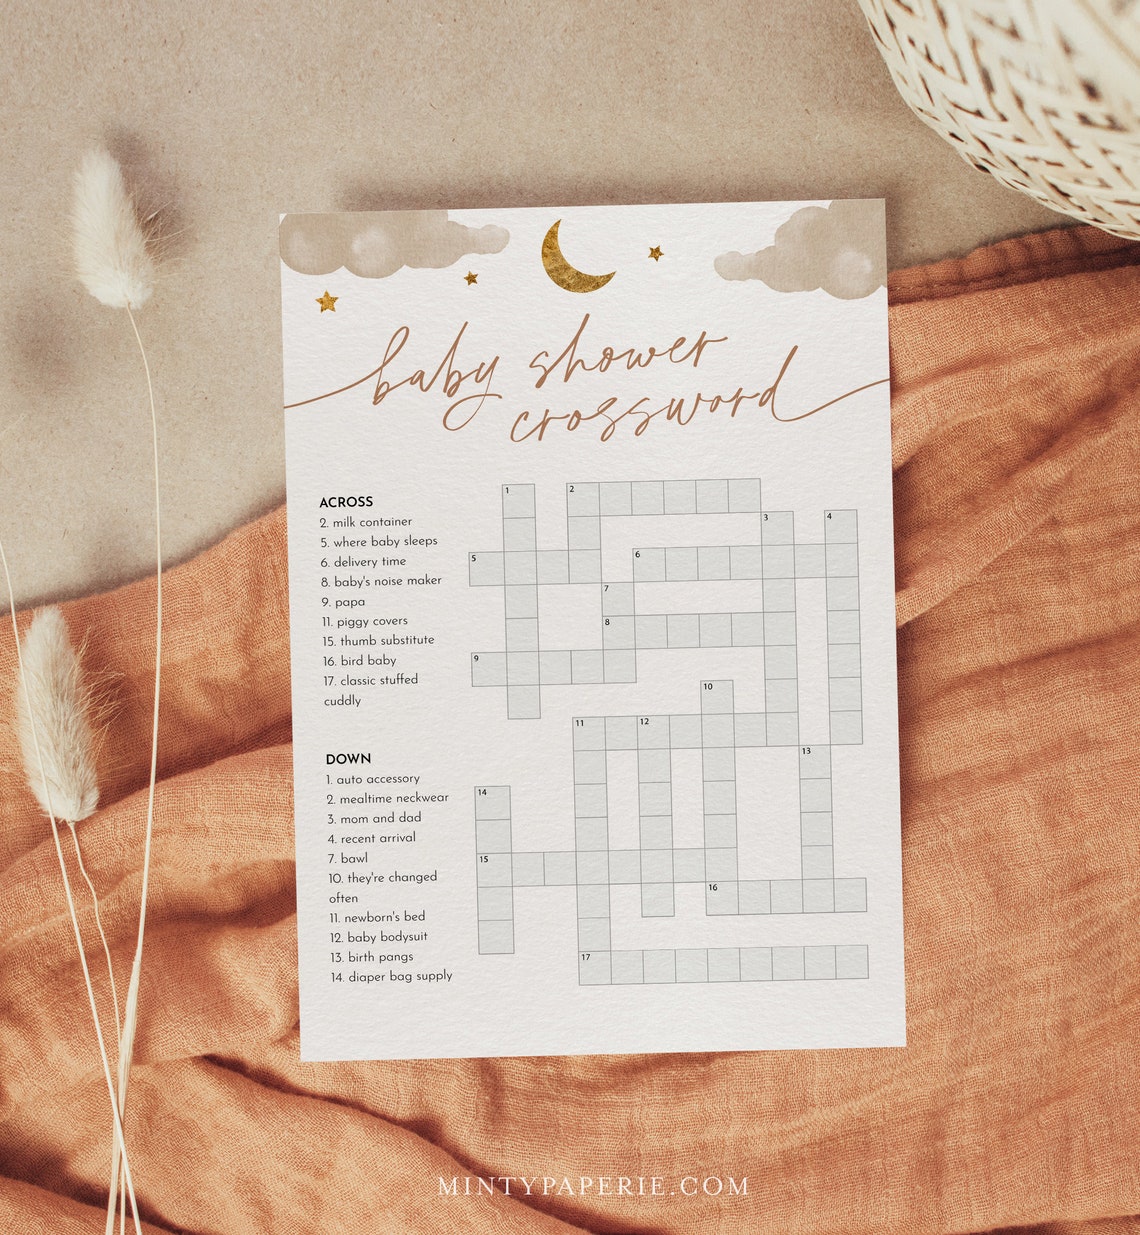 baby shower
crossword
ACROSS
2. milk container
5. where baby sleeps
6. delivery time
8. baby's noise maker
9. papa
11. piggy covers
15. thumb substitute
16. bird baby
17. classic stuffed
cuddly
DOWN
1. auto accessory
2. mealtime neckwear
3. mom and dad
4. recent arrival
7. bawl
10. they're changed
often
11. newborn's bed
12. baby bodysuit
13. birth pangs
14. diaper bag supply
1 2
3 4
5 6
7
8
9
10
11 12
13
14
15
16
17
MINTYPAPERIE.COM